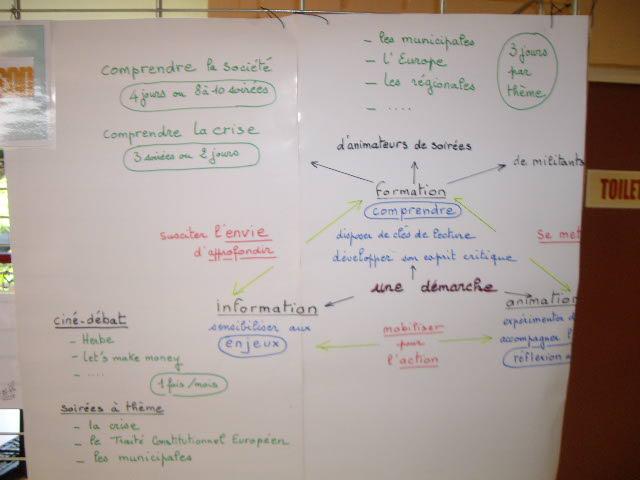 comprendre la société
4 jours ou 8 à 10 soirées
comprendre la crise
3 soirées ou 2 jours
– les municipales
– l'Europe
– les régionales
– ....
3 jours
par
thème
d'animateurs de soirées
de militants
formation
comprendre
disposer de clés de lecture
développer son esprit critique
susciter l'envie
d'approfondir
se met
TOILET
une démarche
information
sensibiliser aux
enjeux
mobiliser
pour
l'action
animation
expérimenter d
accompagner l
réflexion
ciné-débat
– Herbe
– Let's make money
– ....
1 fois/mois
soirées à thème
– la crise
– le Traité Constitutionnel Européen
– les municipales